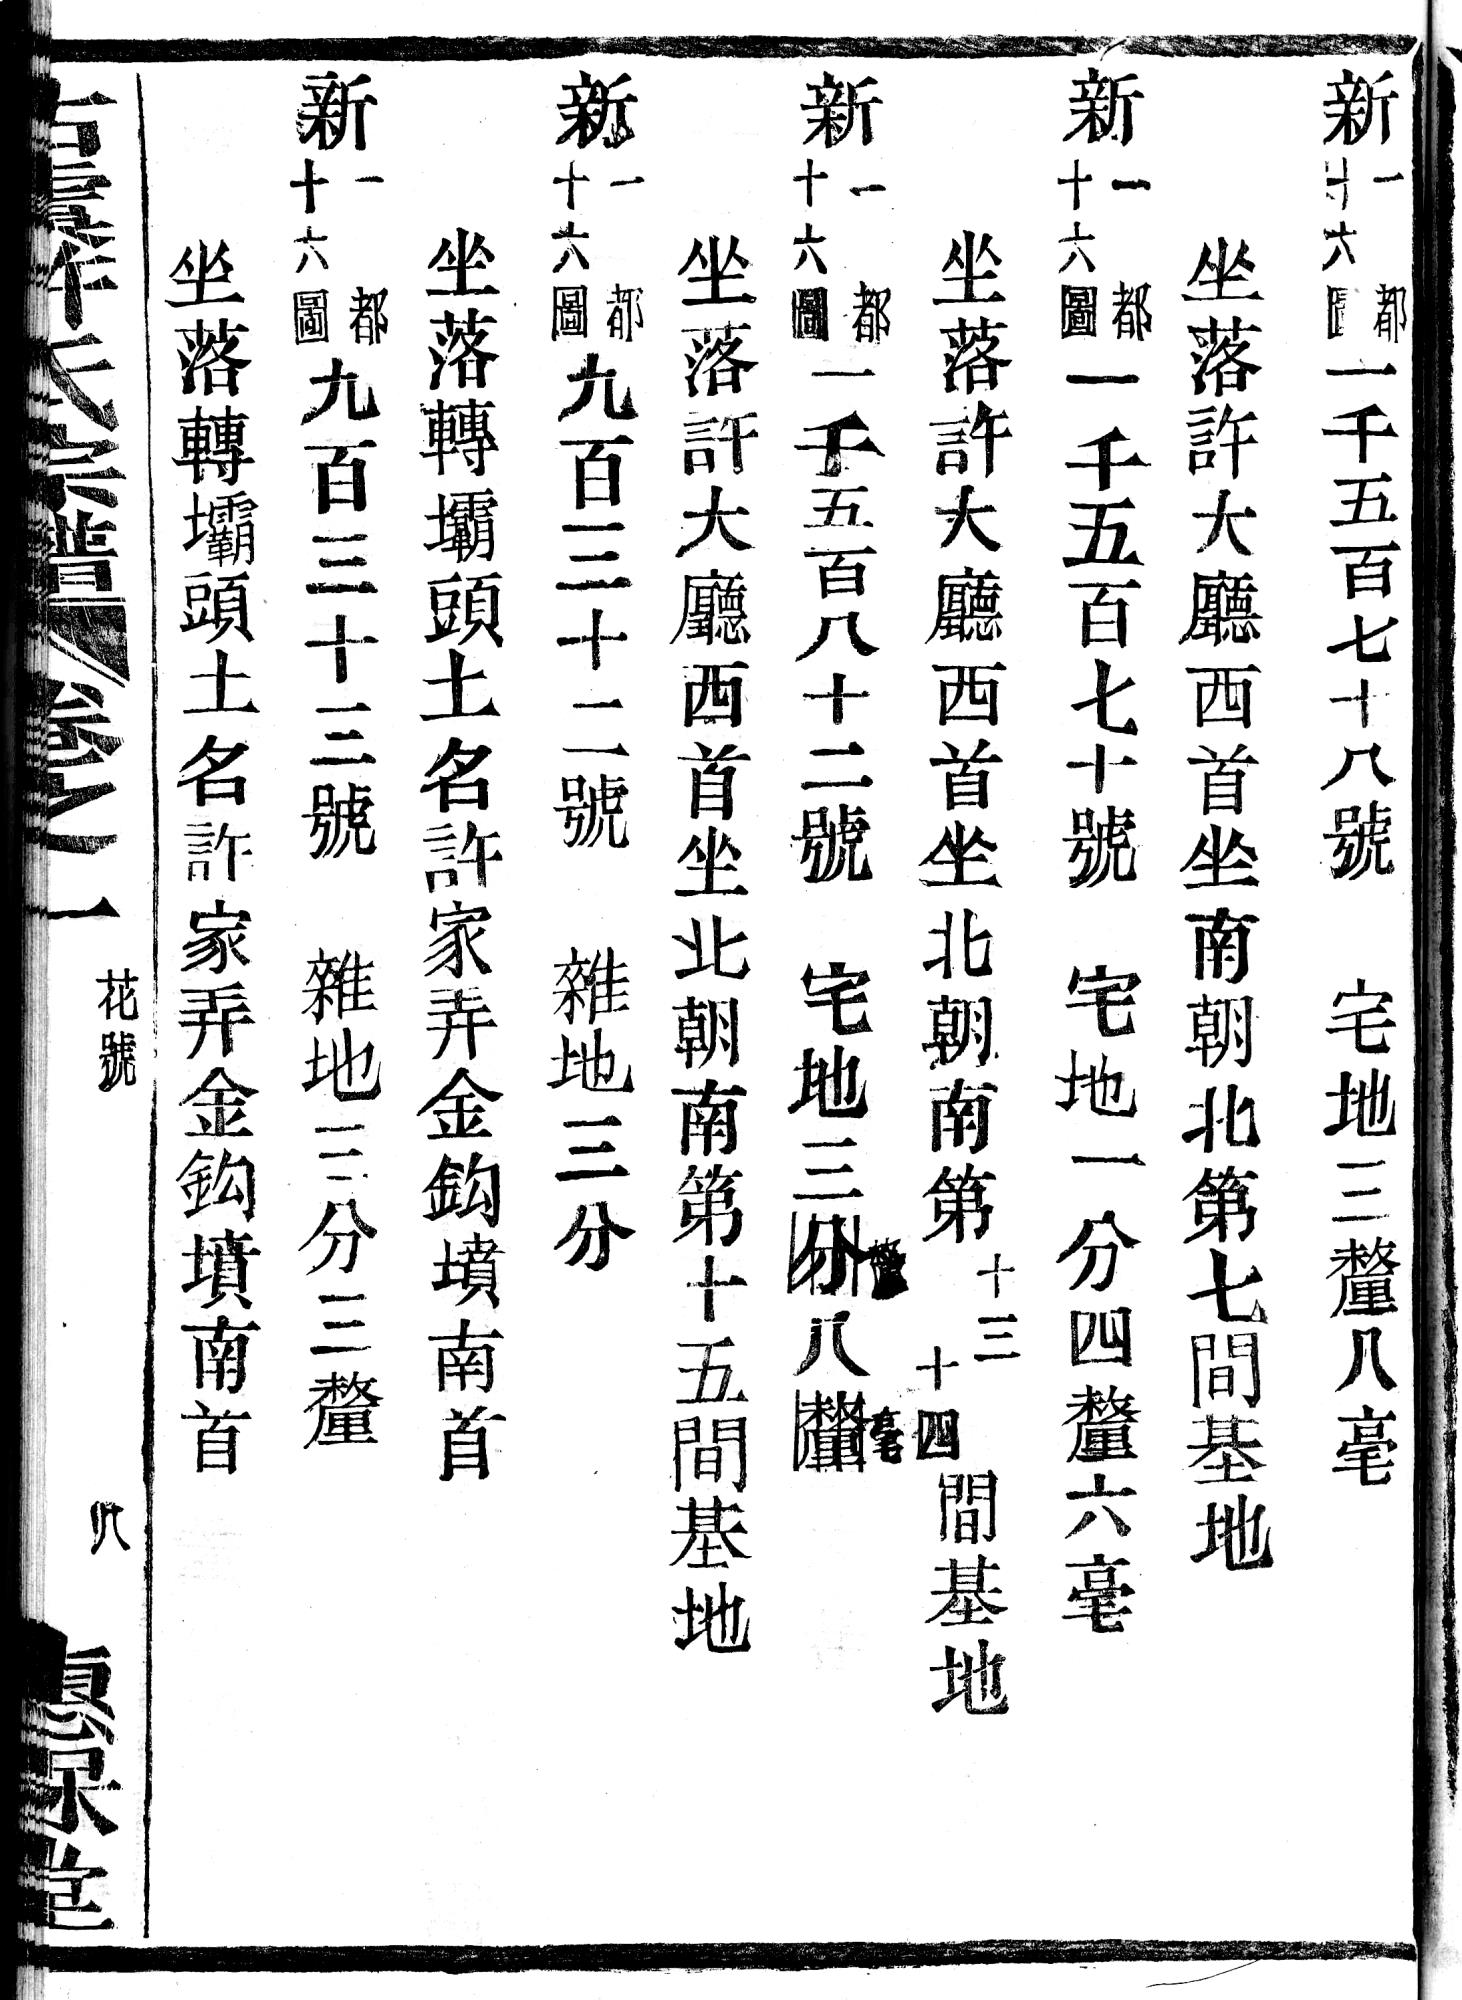 新一都十六圖一千五百七十八號　宅地三釐八毫
坐落許大廳西首坐南朝北第七間基地
新一都十六圖一千五百七十號　宅地一分四釐六毫
坐落許大廳西首坐北朝南第十三十四間基地
新一都十六圖一千五百八十二號　宅地三分釐八釐毫
坐落許大廳西首坐北朝南第十五間基地
新一都十六圖九百三十二號　雜地三分
坐落轉壩頭土名許家弄金鈎墳南首
新一都十六圖九百三十三號　雜地三分三釐
坐落轉壩頭土名許家弄金鈎墳南首
氏宗譜　卷之一　花號　惠保堂